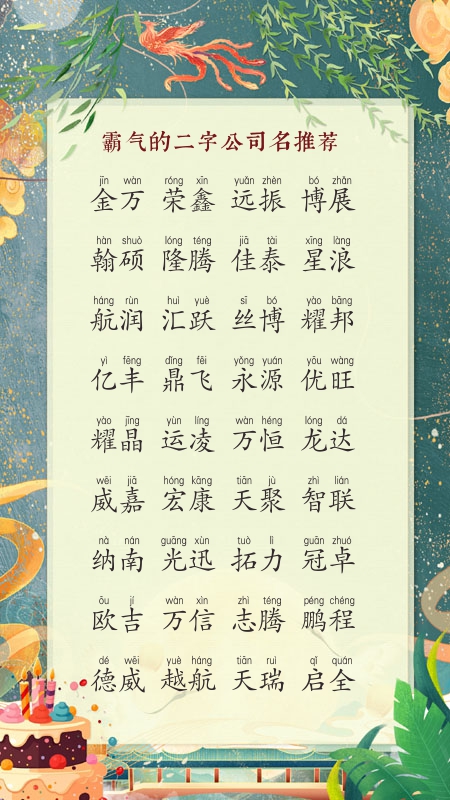 霸气的二字公司名推荐
jīn wàn róng xīn yuǎn zhèn bó zhǎn
金万 荣鑫 远振 博展
hàn shuò lóng téng jiā tài xīng làng
翰硕 隆腾 佳泰 星浪
háng rùn huì yuè sī bó yào bāng
航润 汇跃 丝博 耀邦
yì fēng dǐng fēi yǒng yuán yōu wàng
亿丰 鼎飞 永源 优旺
yào jīng yùn líng wàn héng lóng dá
耀晶 运凌 万恒 龙达
wēi jiā hóng kāng tiān jù zhì lián
威嘉 宏康 天聚 智联
nà nán guāng xùn tuò lì guān zhuó
纳南 光迅 拓力 冠卓
ōu jí wàn xìn zhì téng péng chéng
欧吉 万信 志腾 鹏程
dé wēi yuè háng tiān ruì qǐ quán
德威 越航 天瑞 启全